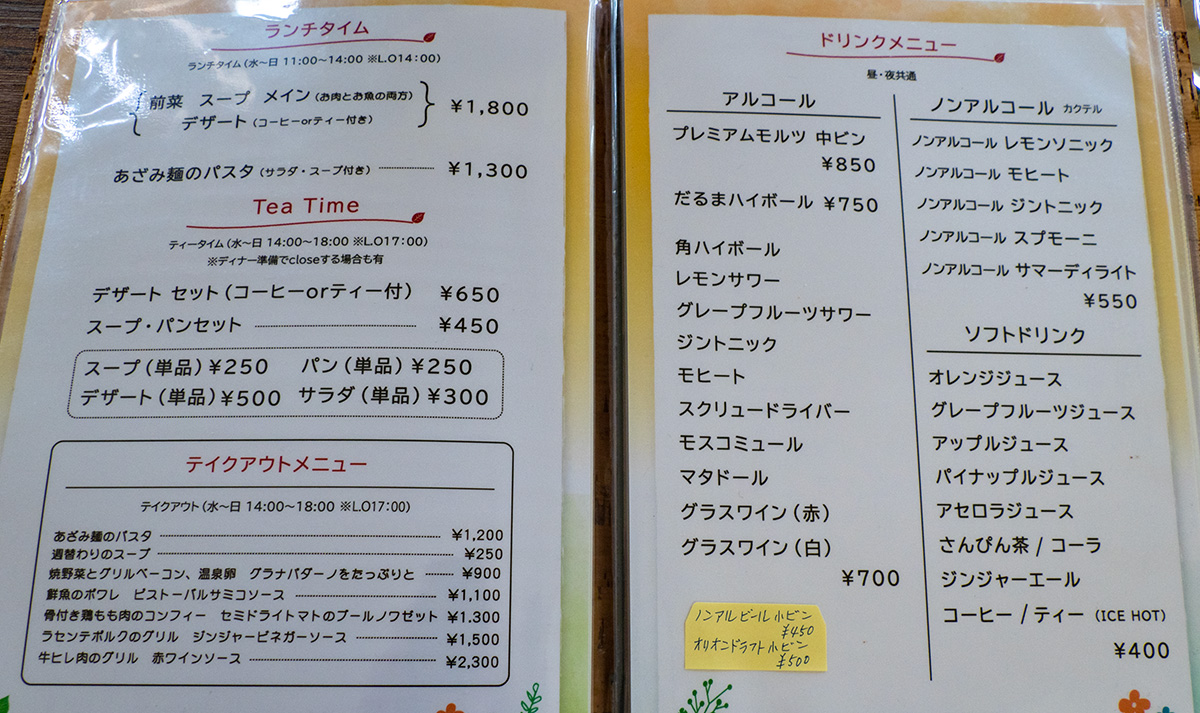 ランチタイム
ランチタイム(水〜日 11:00〜14:00 ※L.O14:00)
前菜 スープ メイン(お肉とお魚の両方)
デザート(コーヒーorティー付き)
¥1,800
あざみ麺のパスタ(サラダ・スープ付き) ¥1,300
Tea Time
ティータイム(水〜日 14:00〜18:00 ※L.O17:00)
※ディナー準備でcloseする場合も有
デザート セット(コーヒーorティー付) ¥650
スープ・パンセット ¥450
スープ(単品)¥250 パン(単品)¥250
デザート(単品)¥500 サラダ(単品)¥300
テイクアウトメニュー
テイクアウト(水〜日 14:00〜18:00 ※L.O17:00)
あざみ麺のパスタ ¥1,200
週替わりのスープ ¥250
焼野菜とグリルベーコン、温泉卵 グラナパダーノをたっぷりと ¥900
鮮魚のポワレ ピストーバルサミコソース ¥1,100
骨付き鶏もも肉のコンフィー セミドライトマトのブールノワゼット ¥1.300
ラセンテポルクのグリル ジンジャービネガーソース ¥1,500
牛ヒレ肉のグリル 赤ワインソース ¥2,300
ドリンクメニュー
昼・夜共通
アルコール
プレミアムモルツ 中ビン
¥850
だるまハイボール ¥750
角ハイボール
レモンサワー
グレープフルーツサワー
ジントニック
モヒート
スクリュードライバー
モスコミュール
マタドール
グラスワイン(赤)
グラスワイン(白)
¥700
ノンアルビール小ビン
¥450
オリオンドラフト小ビン
¥500
ノンアルコール カクテル
ノンアルコール レモンソニック
ノンアルコール モヒート
ノンアルコール ジントニック
ノンアルコール スプモーニ
ノンアルコール サマーディライト
¥550
ソフトドリンク
オレンジジュース
グレープフルーツジュース
アップルジュース
パイナップルジュース
アセロラジュース
さんぴん茶 / コーラ
ジンジャーエール
コーヒー / ティー (ICE HOT)
¥400